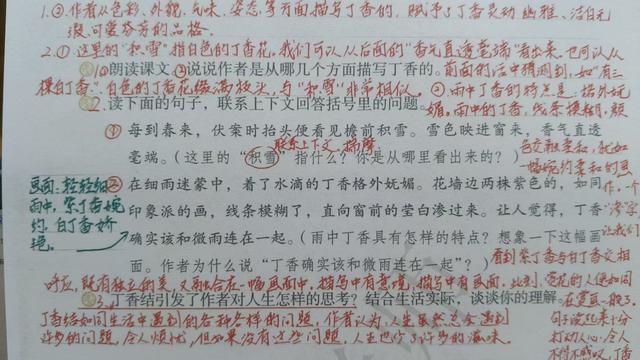 1.②作者从色彩、外形、气味、姿态等方面描写丁香的,赋予了丁香灵动幽雅、洁白无
瑕、可爱芬芳的品格.
2.①这里的"积雪"指白色的丁香花.我们可以从后面的"香气直透毫端"看出来.也可以从
①朗读课文。②说说作者是从哪几个方面描写丁香的。
前面的话中猜测到,如"有三
棵白丁香".白色的丁香花缀满枝头,与"积雪"非常相似。②雨中丁香的特点是:格外妩
2.读下面的句子,联系上下文回答括号里的问题。
媚。雨中的丁香,线条模糊,颜
①每到春来,伏案时抬头便看见檐前积雪。雪色映进窗来,香气直透
联系上下文、揣摩
毫端。(这里的"积雪"指什么?你是从哪里看出来的?)
色交融柔和,犹如
一幅婉约柔和的画
画面:轻轻细
雨中,紫丁香婉
约,白丁香娇
艳。
②在细雨迷蒙中,着了水滴的丁香格外妩媚。花墙边两株紫色的,如同
印象派的画,线条模糊了,直向窗前的莹白渗过来。让人觉得,丁香
确实该和微雨连在一起。(雨中丁香具有怎样的特点?想象一下这幅画
面。作者为什么说"丁香确实该和微雨连在一起"?)
作,一个
"渗"字
让我们
看到紫丁香与白丁香交相
呼应,既有独立的美,又融合在一幅画面中,描写中有意境,描写中有画面.此刻,赏花的人便如同
3.丁香结引发了作者对人生怎样的思考?结合生活实际,谈谈你的理解。
在赏画一般了.
丁香结如同生活中遇到的各种各样的问题.作者认为,人生虽然总会遇到
句子读起来十分
许多的问题,令人烦忧,但如果没有这些问题,人生也少了许多的滋味.
打动人心,令人
不得不感叹,丁香